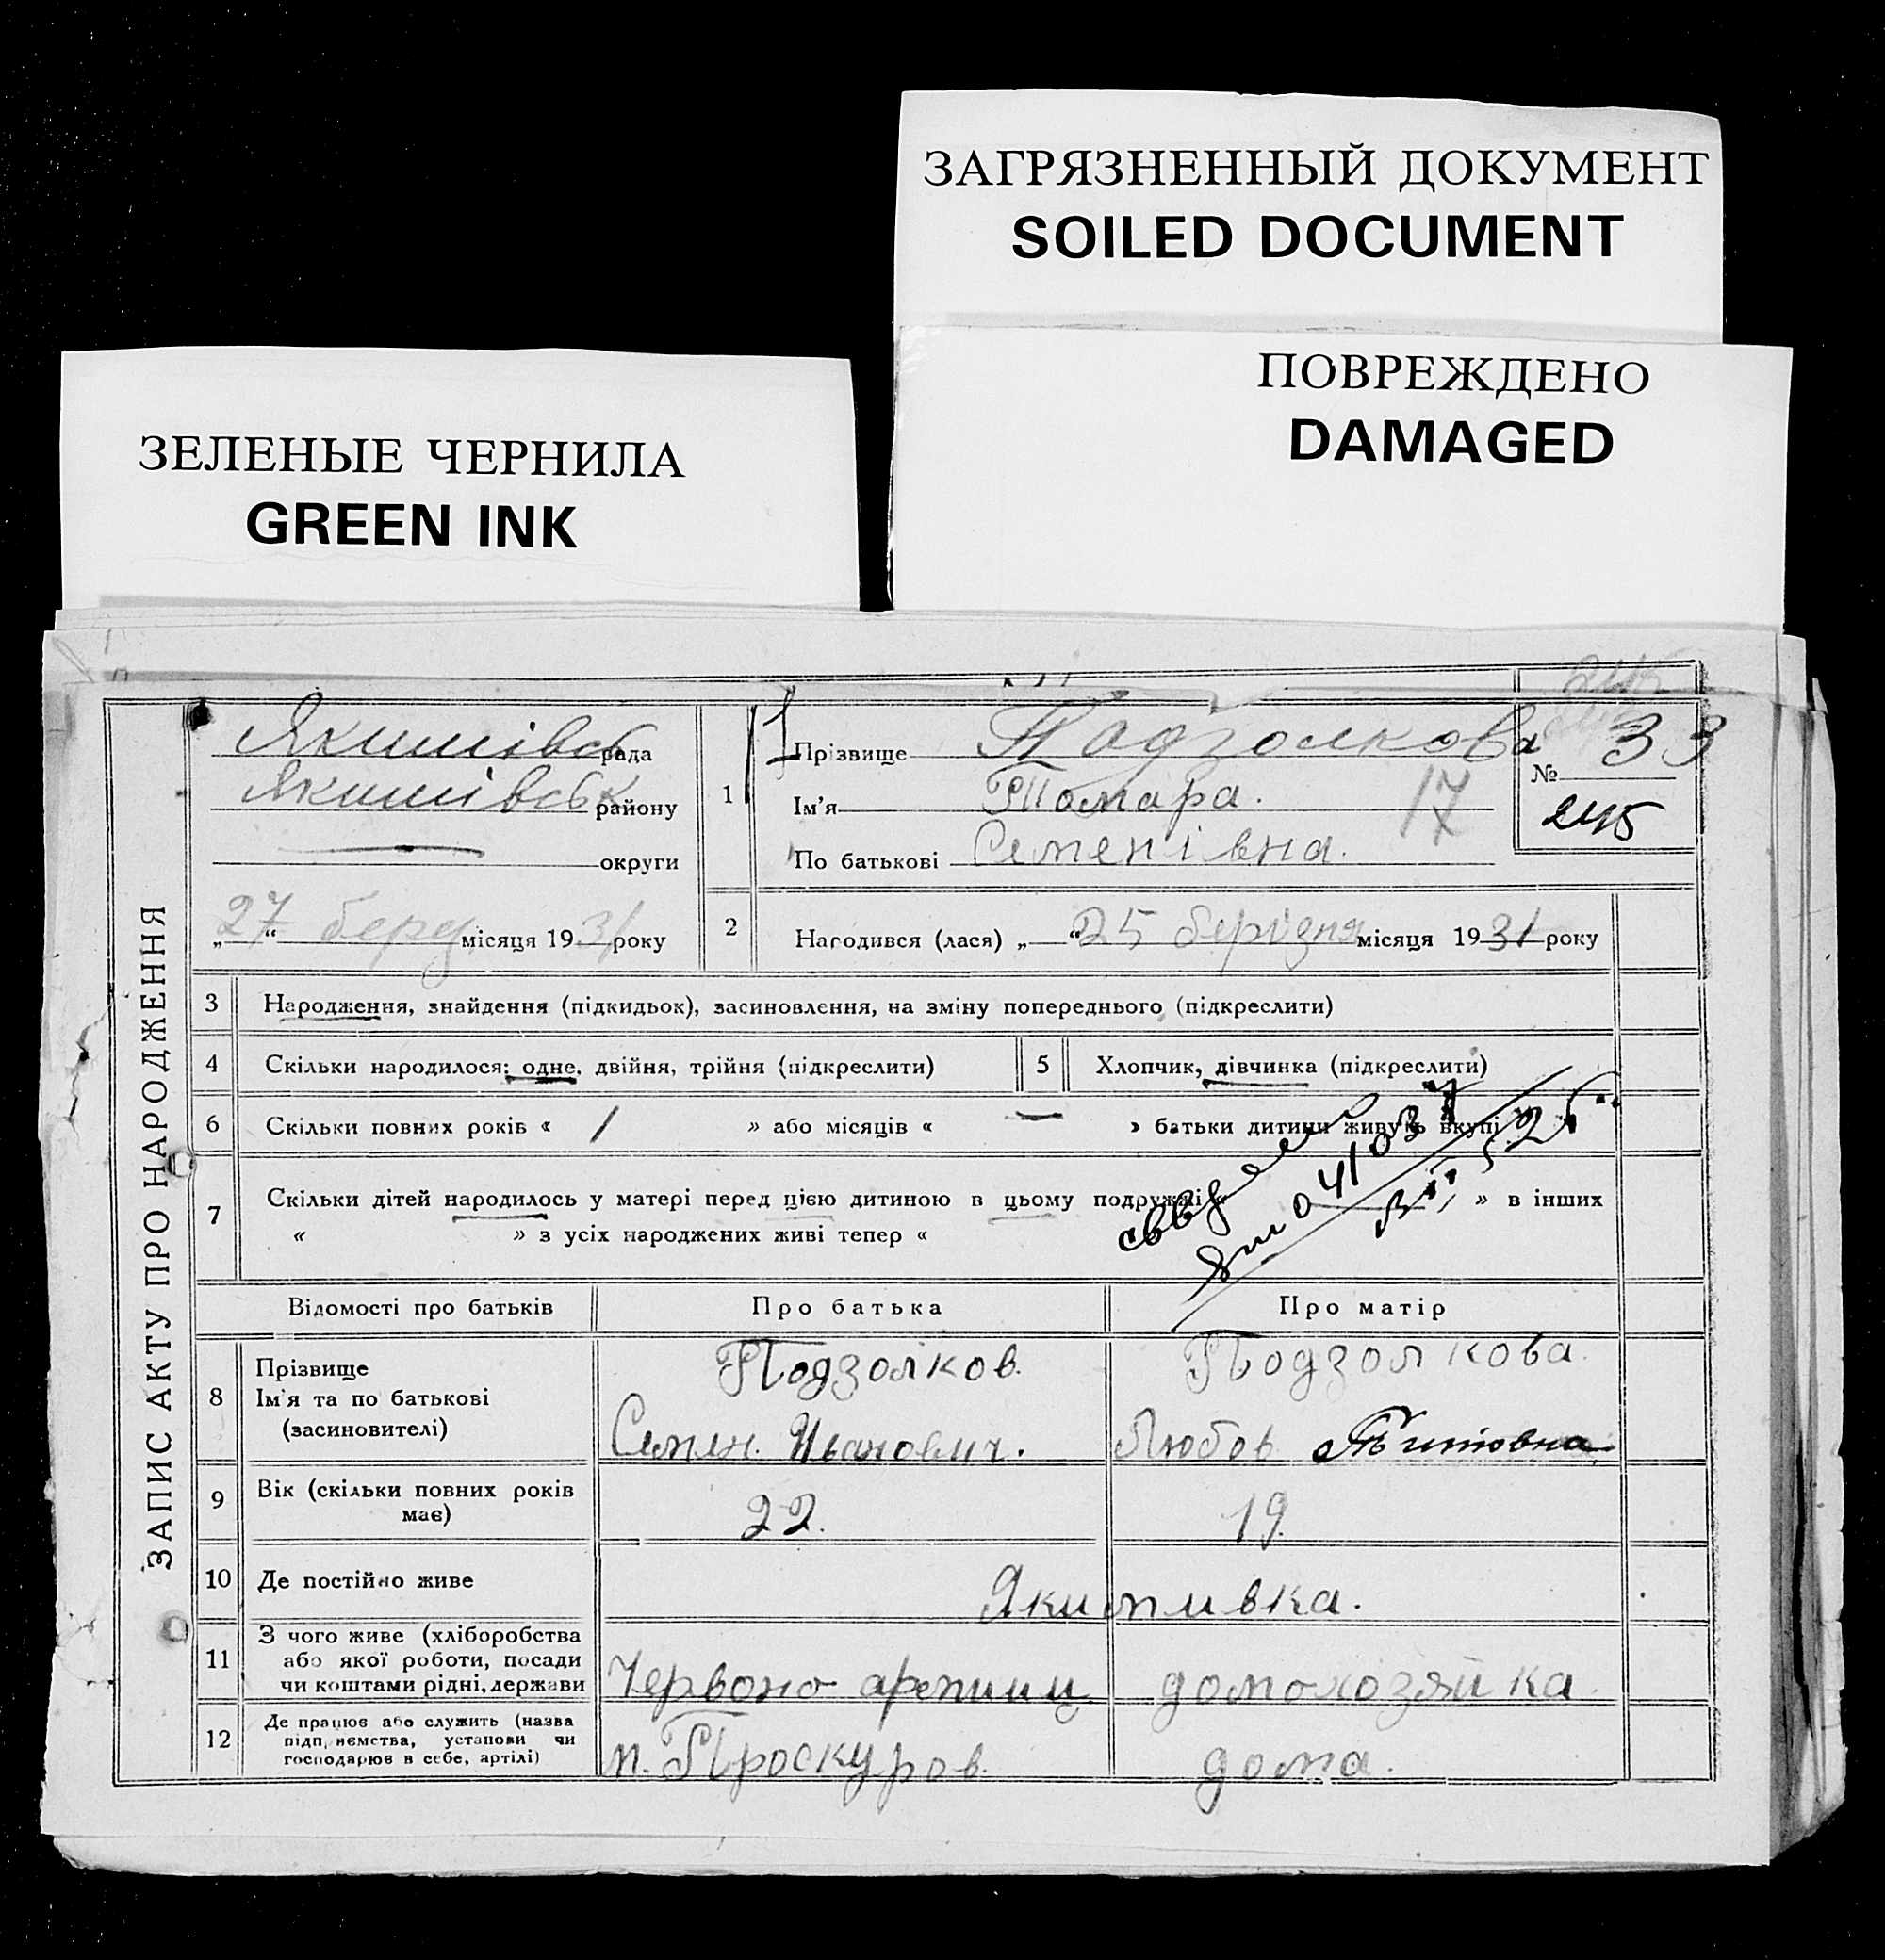 ЗАГРЯЗНЕННЫЙ ДОКУМЕНТ
SOILED DOCUMENT
ПОВРЕЖДЕНО
DAMAGED
ЗЕЛЕНЫЕ ЧЕРНИЛА
GREEN INK
ЗАПИС АКТУ ПРО НАРОДЖЕННЯ
Якимівськ рада
Якимівськ району
округи
„27“ берез місяця 1931 року
1
Прізвище Подзолкова
Ім'я Тамара.
По батькові Семенівна.
17
33
№
245
2 Народився (лася) „ “ 25 берізня місяця 1931 року
3 Народження, знайдення (підкидьок), засиновлення, на зміну попереднього (підкреслити)
4 Скільки народилося: одне, двійня, трійня (підкреслити)
5 Хлопчик, дівчинка (підкреслити)
6 Скільки повних років « 1 » або місяців « — » батьки дитини живуть вкупі
7 Скільки дітей народилось у матері перед цією дитиною в цьому подружжі « » в інших
« » з усіх народжених живі тепер «
Відомості про батьків Про батька Про матір
8 Прізвище
Ім'я та по батькові
(засиновителі)
Подзолков.
Семен. Иванович.
Подзолкова.
Любов Титовна
9 Вік (скільки повних років
має)
22. 19.
10 Де постійно живе Якимивка.
11 З чого живе (хліборобства
або якої роботи, посади
чи коштами рідні, держави
Червоно армииц домохозяйка.
12 Де працює або служить (назва
підприємства, установи чи
господарює в себе, артілі)
м. Проскуров. дома.